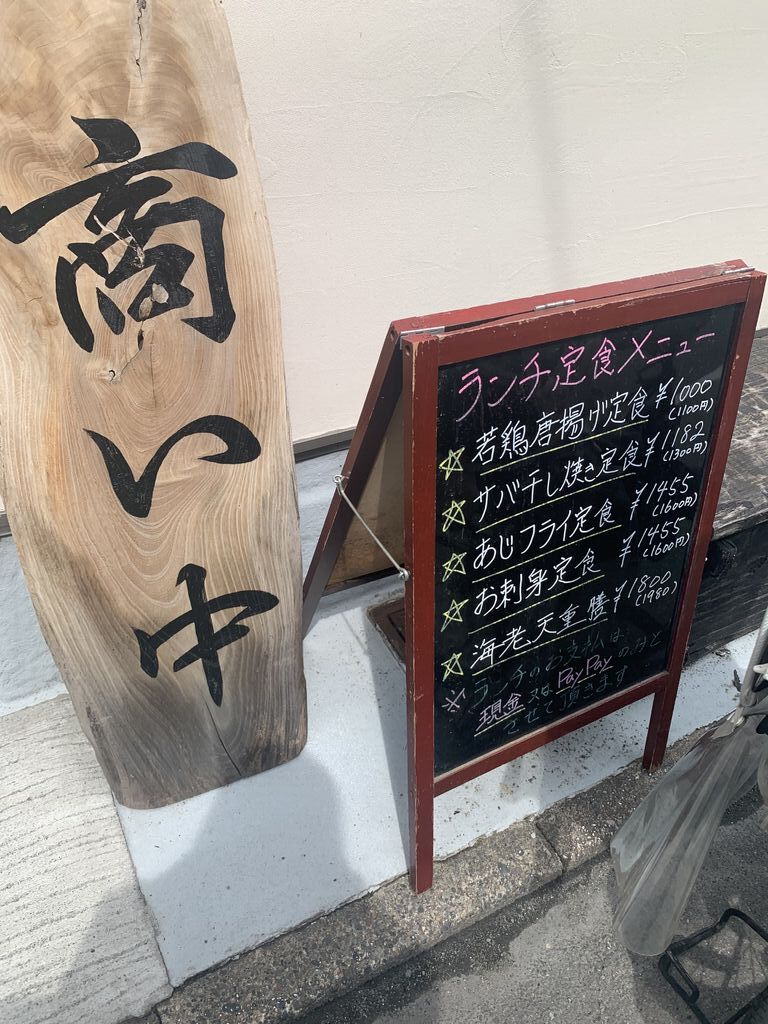 商い中
ランチ定食メニュー
☆ 若鶏唐揚げ定食 ¥1000
(1100円)
☆ サバ干し焼き定食 ¥1182
(1300円)
☆ あじフライ定食 ¥1455
(1600円)
☆ お刺身定食 ¥1455
(1600円)
☆ 海老天重膳 ¥1800
(1980)
※ ランチのお支払は
現金又はPayPayのみと
させて頂きます